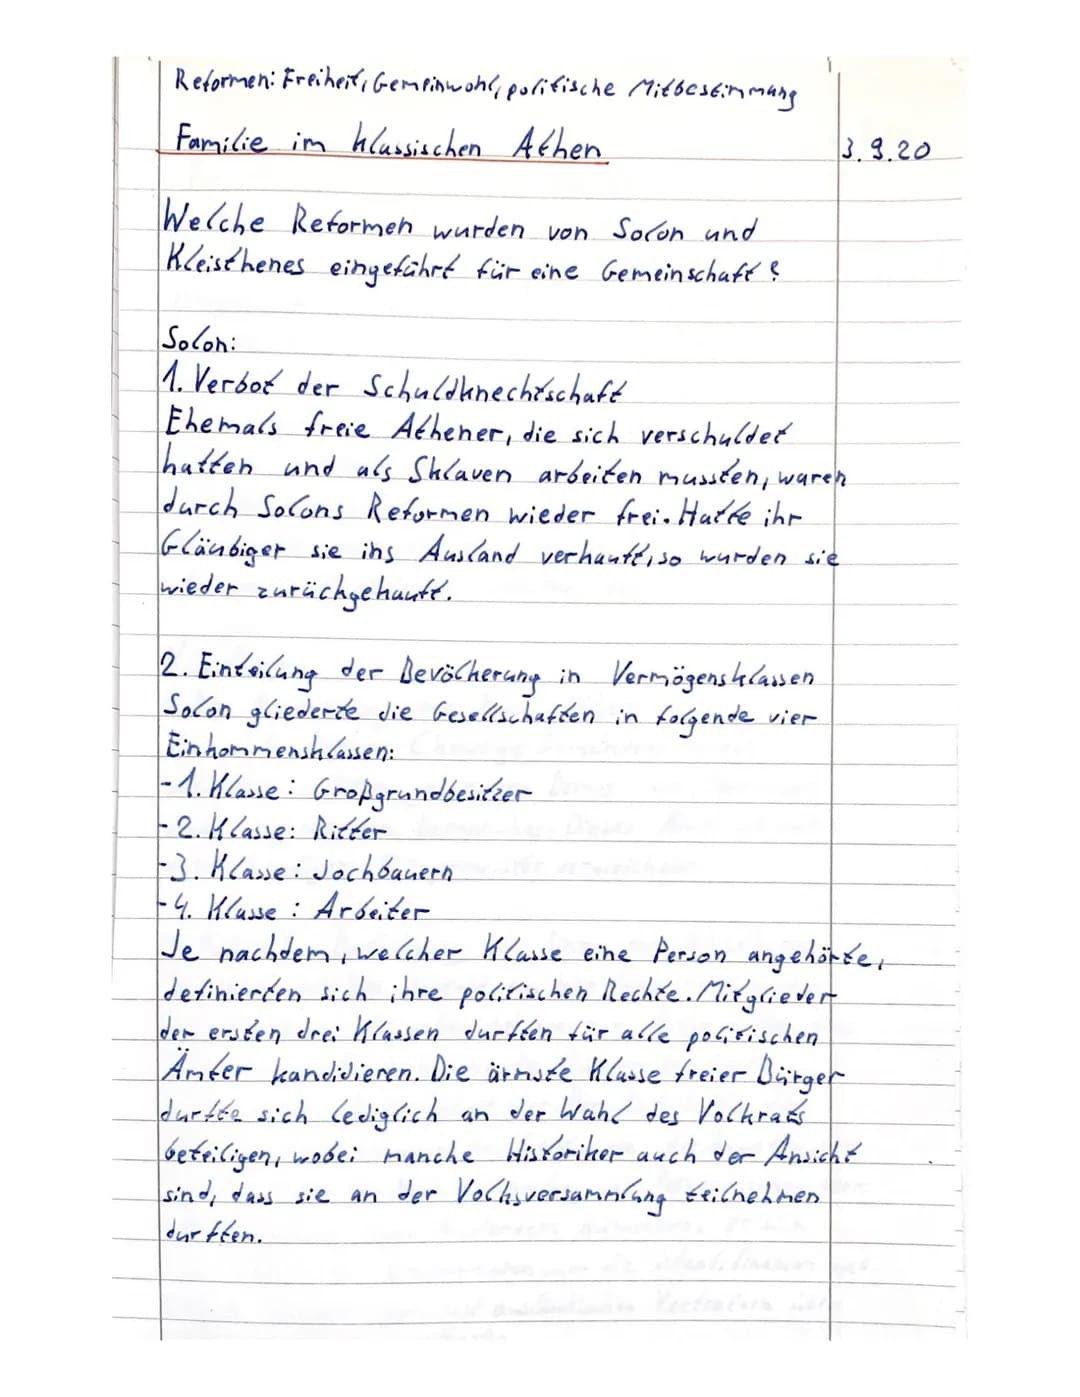 Reformen: Freiheit, Gemeinwohl, politische Mitbestimmung
Familie im klassischen Athen
3.9.20
Welche Reformen wurden von Solon und
Kleisthenes eingeführt für eine Gemeinschaft?
Solon:
1. Verbot der Schuldknechtschaft
Ehemals freie Athener, die sich verschuldet
hatten und als Sklaven arbeiten mussten, waren
durch Solons Reformen wieder frei. Hatte ihr
Gläubiger sie ins Ausland verkauft, so wurden sie
wieder zurückgekauft.
2. Einteilung der Bevölcherung in Vermögensklassen
Solon gliederte die Gesellschaften in folgende vier
Einkommensklassen:
- 1. Klasse: Großgrundbesitzer
- 2. Klasse: Ritter
- 3. Klasse: Jochbauern
- 4. Klasse: Arbeiter
Je nachdem, welcher Klasse eine Person angehörte,
definierten sich ihre politischen Rechte. Mitglieder
der ersten drei Klassen durften für alle politischen
Ämter kandidieren. Die ärmste Klasse freier Bürger
durfte sich lediglich an der Wahl des Volkrats
beteiligen, wobei manche Historiker auch der Ansicht
sind, dass sie an der Volksversammlung teilnehmen
durften.